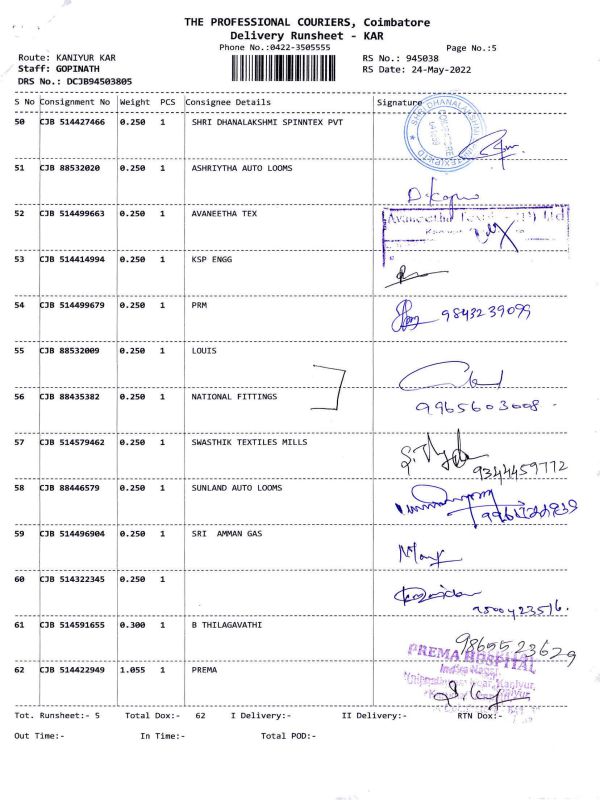 THE PROFESSIONAL COURIERS, Coimbatore
Delivery Runsheet - KAR
Phone No.:0422-3505555 Page No.:5
Route: KANIYUR KAR RS No.: 945038
Staff: GOPINATH RS Date: 24-May-2022
DRS No.: DCJB94503805
S No Consignment No Weight PCS Consignee Details Signature
50 CJB 514427466 0.250 1 SHRI DHANALAKSHMI SPINNTEX PVT
51 CJB 88532020 0.250 1 ASHRIYTHA AUTO LOOMS
52 CJB 514499663 0.250 1 AVANEETHA TEX
53 CJB 514414994 0.250 1 KSP ENGG
54 CJB 514499679 0.250 1 PRM
9843239099
55 CJB 88532009 0.250 1 LOUIS
56 CJB 88435382 0.250 1 NATIONAL FITTINGS
9965603008
57 CJB 514579462 0.250 1 SWASTHIK TEXTILES MILLS
9344459772
58 CJB 88446579 0.250 1 SUNLAND AUTO LOOMS
59 CJB 514496904 0.250 1 SRI AMMAN GAS
60 CJB 514322345 0.250 1
7500423516.
61 CJB 514591655 0.300 1 B THILAGAVATHI
9865523629
PREMA HOSPITAL
62 CJB 514422949 1.055 1 PREMA
Tot. Runsheet:- 5 Total Dox:- 62 I Delivery:- II Delivery:- RTN Dox:-
Out Time:- In Time:- Total POD:-